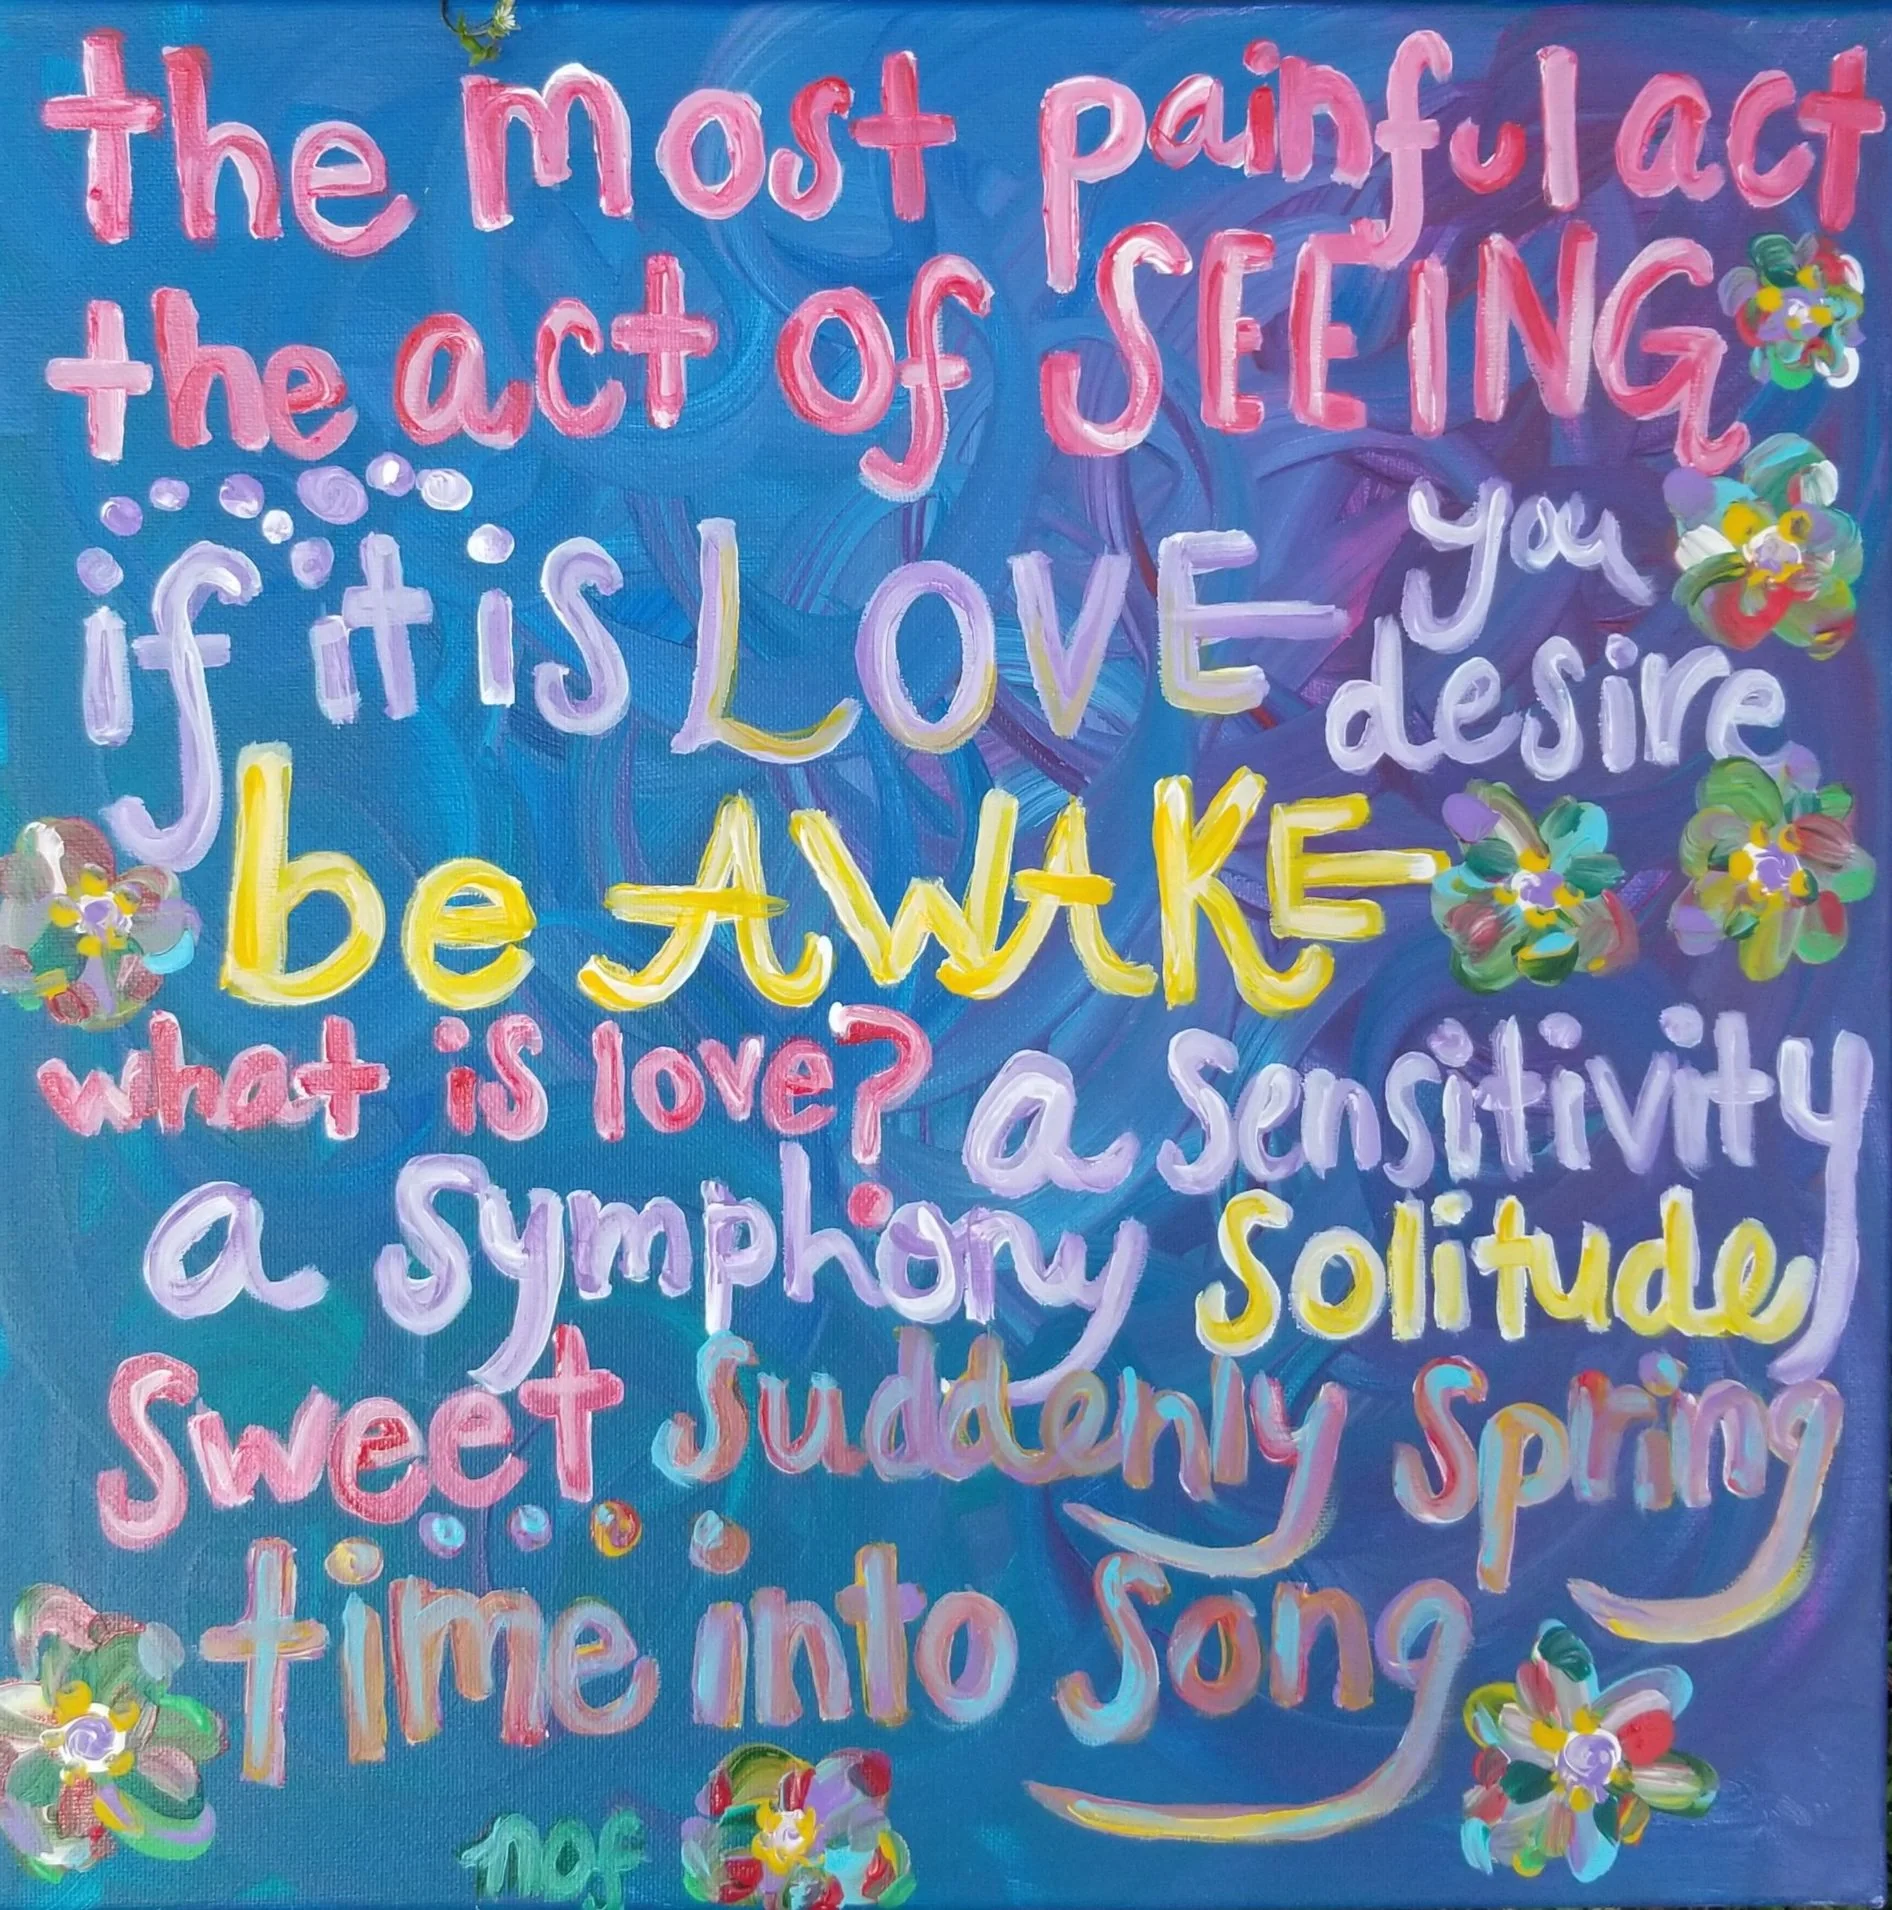 the most painful act
the act of SEEING
if it is LOVE you
desire
be AWAKE
what is love? a sensitivity
a symphony solitude
Sweet Suddenly Spring
time into Song
nof